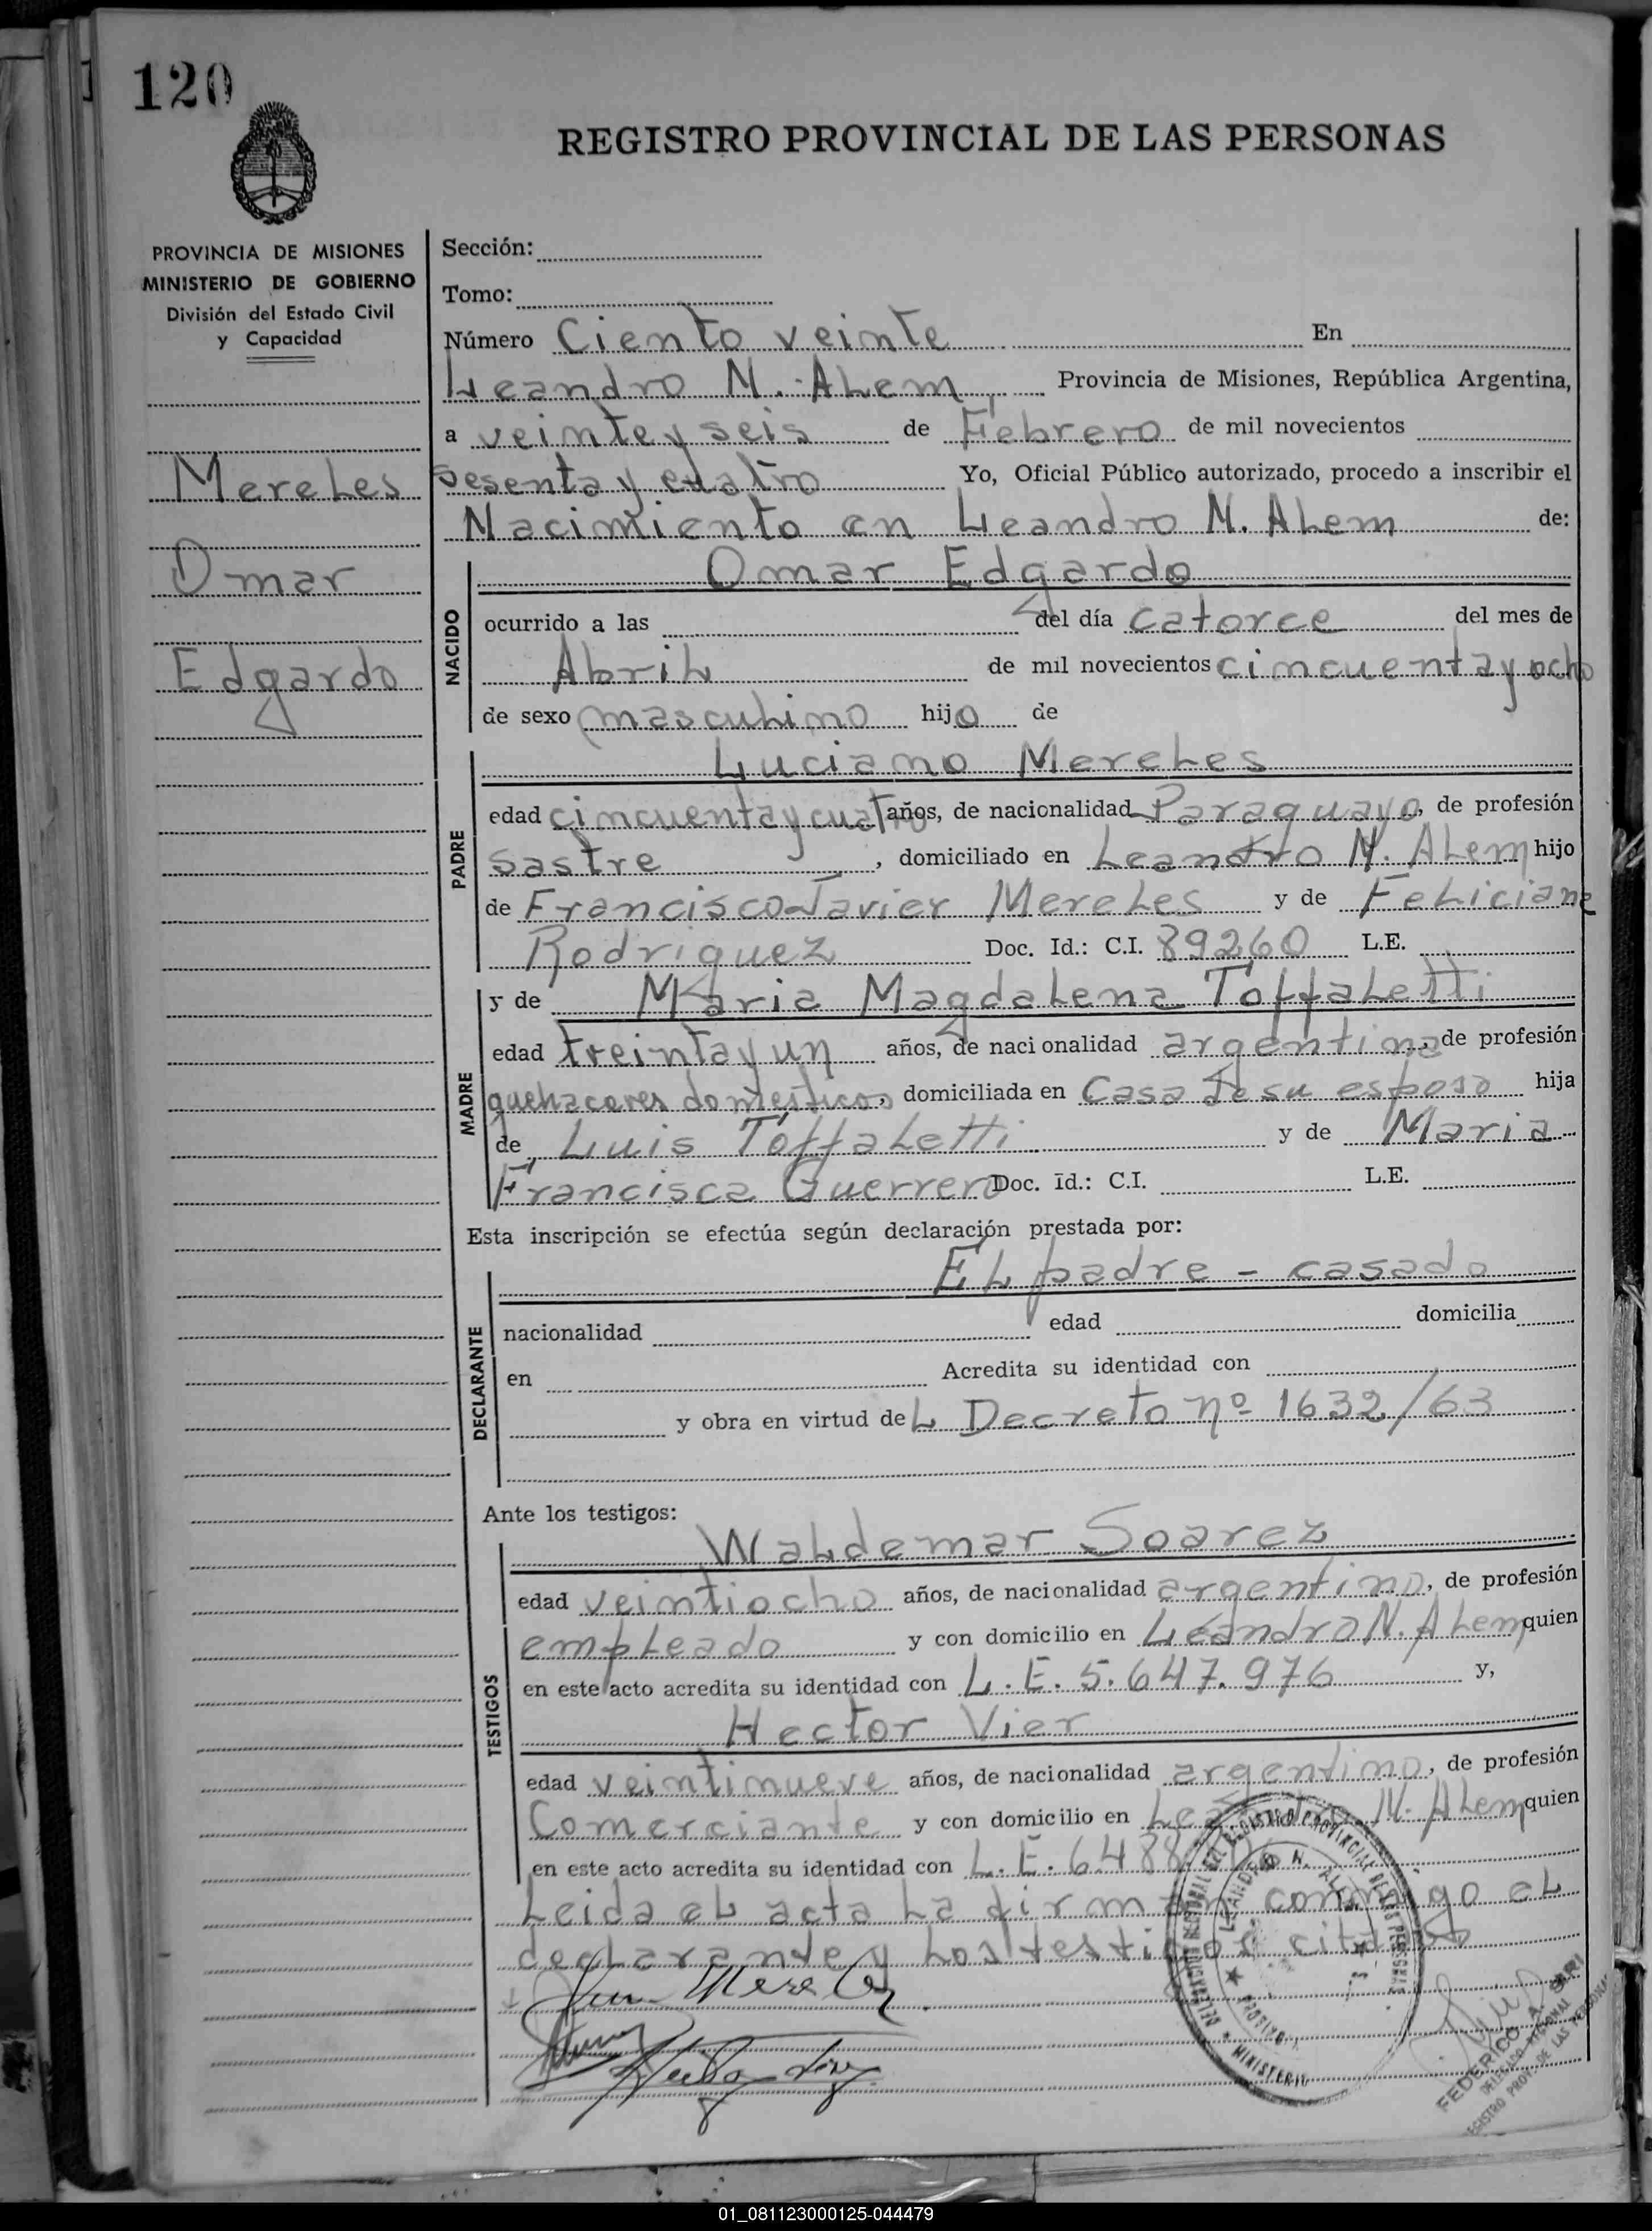 120
REGISTRO PROVINCIAL DE LAS PERSONAS
PROVINCIA DE MISIONES
MINISTERIO DE GOBIERNO
División del Estado Civil
y Capacidad
Mereles
Omar
Edgardo
Sección:
Tomo:
Número Ciento veinte En
Leandro N. Alem, Provincia de Misiones, República Argentina,
a veinte y seis de Febrero de mil novecientos
sesenta y cuatro Yo, Oficial Público autorizado, procedo a inscribir el
Nacimiento en Leandro N. Alem de:
NACIDO
Omar Edgardo
ocurrido a las del día catorce del mes de
Abril de mil novecientos cincuenta y ocho
de sexo masculino hijo de
PADRE
Luciano Mereles
edad cincuenta y cuatro años, de nacionalidad Paraguayo, de profesión
sastre, domiciliado en Leandro N. Alem hijo
de Francisco Javier Mereles y de Feliciana
Rodriguez Doc. Id.: C.I. 89260 L.E.
MADRE
y de Maria Magdalena Toffaletti
edad treinta y un años, de nacionalidad argentina, de profesión
quehaceres domésticos, domiciliada en Casa de su esposo hija
de Luis Toffaletti y de Maria
Francisca Guerrero Doc. Id.: C.I. L.E.
Esta inscripción se efectúa según declaración prestada por:
DECLARANTE
El padre - casado
nacionalidad edad domicilia
en Acredita su identidad con
y obra en virtud del Decreto nº 1632/63
Ante los testigos:
TESTIGOS
Waldemar Soarez
edad veintiocho años, de nacionalidad argentino, de profesión
empleado y con domicilio en Leandro N. Alem quien
en este acto acredita su identidad con L.E. 5.647.976 y,
Hector Vier
edad veintinueve años, de nacionalidad argentino, de profesión
Comerciante y con domicilio en Leandro N. Alem quien
en este acto acredita su identidad con L.E.
Leida el acta la firman conmigo el
declarante y los testigos citados
DELEGACION REGIONAL DEL REGISTRO PROVINCIAL DE LAS PERSONAS
LEANDRO N. ALEM
MINISTERIO
FEDERICO A.
DELEGADO REGIONAL
REGISTRO PROV. DE LAS PERSONAS
01_081123000125-044479